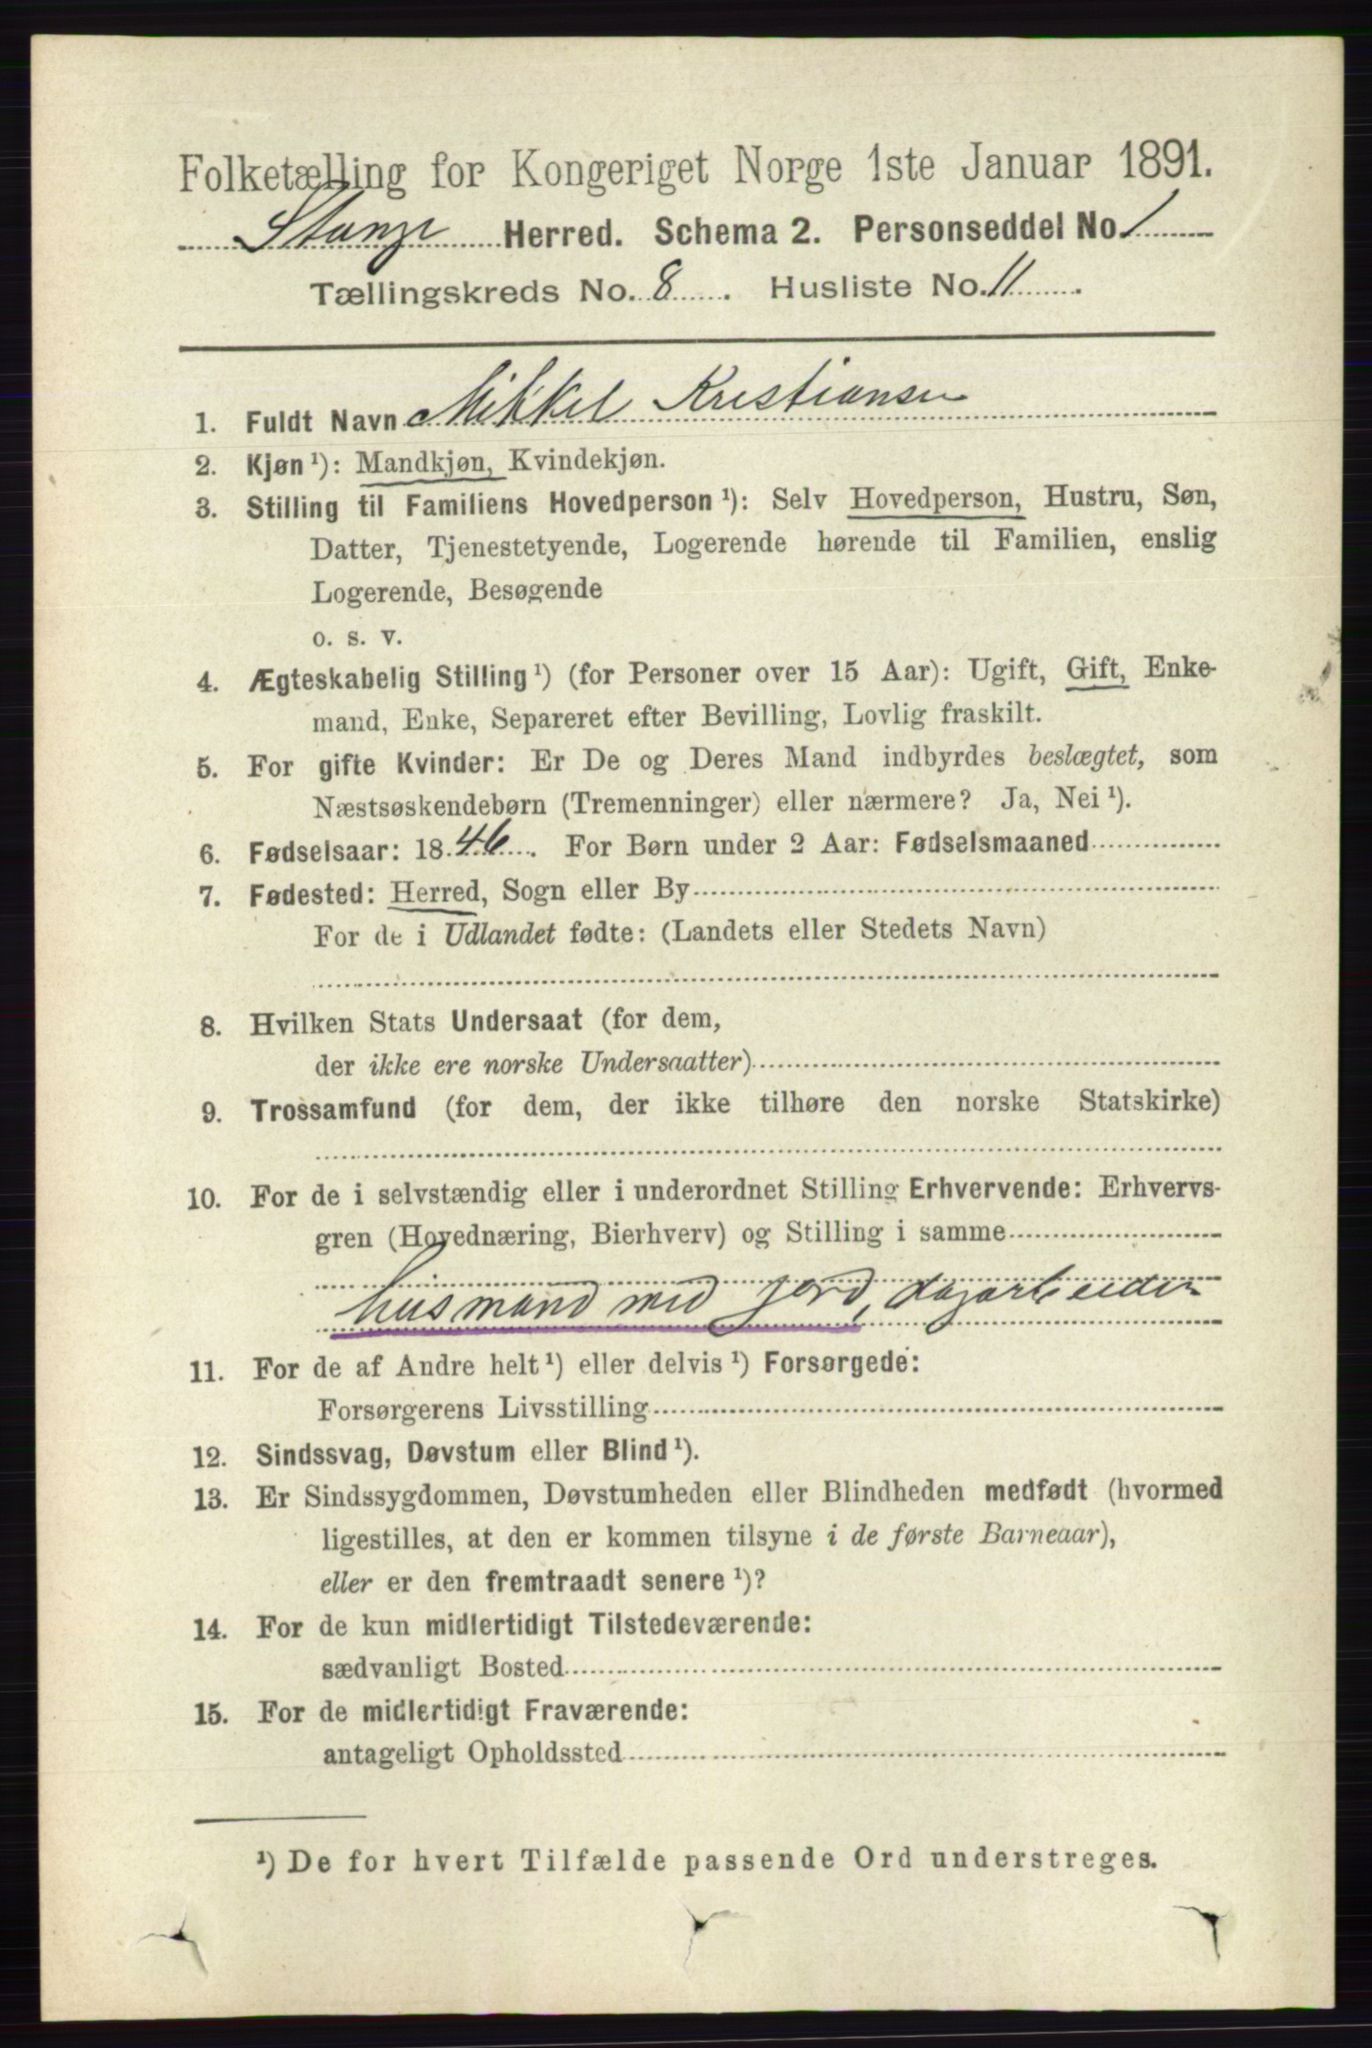 Folketælling for Kongeriget Norge 1ste Januar 1891.
Stange Herred. Schema 2. Personseddel No. 1
Tællingskreds No. 8. Husliste No. 11.
1. Fuldt Navn Mikkel Kristiansen
2. Kjøn ¹): Mandkjøn, Kvindekjøn.
3. Stilling til Familiens Hovedperson ¹): Selv Hovedperson, Hustru, Søn,
Datter, Tjenestetyende, Logerende hørende til Familien, enslig
Logerende, Besøgende
o. s. v.
4. Ægteskabelig Stilling ¹) (for Personer over 15 Aar): Ugift, Gift, Enke-
mand, Enke, Separeret efter Bevilling, Lovlig fraskilt.
5. For gifte Kvinder: Er De og Deres Mand indbyrdes beslægtet, som
Næstsøskendebørn (Tremenninger) eller nærmere? Ja, Nei ¹).
6. Fødselsaar: 1846. For Børn under 2 Aar: Fødselsmaaned
7. Fødested: Herred, Sogn eller By
For de i Udlandet fødte: (Landets eller Stedets Navn)
8. Hvilken Stats Undersaat (for dem,
der ikke ere norske Undersaatter)
9. Trossamfund (for dem, der ikke tilhøre den norske Statskirke)
10. For de i selvstændig eller i underordnet Stilling Erhvervende: Erhvervs-
gren (Hovednæring, Bierhverv) og Stilling i samme
husmand med jord, dagarbeider
11. For de af Andre helt ¹) eller delvis ¹) Forsørgede:
Forsørgerens Livsstilling
12. Sindssvag, Døvstum eller Blind ¹).
13. Er Sindssygdommen, Døvstumheden eller Blindheden medfødt (hvormed
ligestilles, at den er kommen tilsyne i de første Barneaar),
eller er den fremtraadt senere ¹)?
14. For de kun midlertidigt Tilstedeværende:
sædvanligt Bosted
15. For de midlertidigt Fraværende:
antageligt Opholdssted
¹) De for hvert Tilfælde passende Ord understreges.